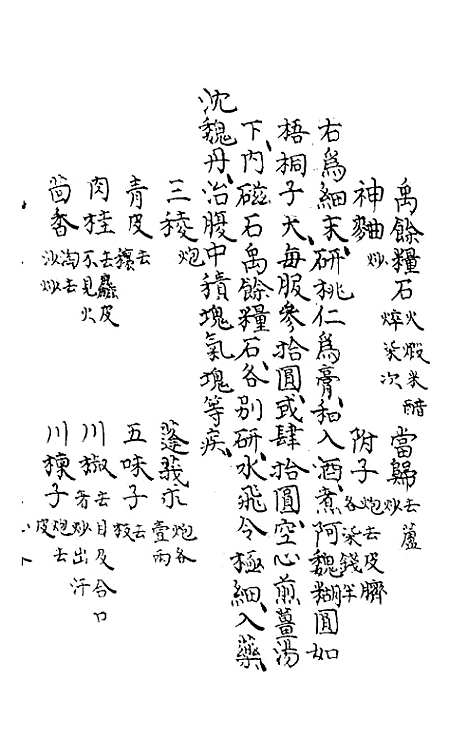 禹餘糧石火煅米醋焠柒次 當歸去蘆炒
神麯炒 附子炮去皮臍各柒錢半
右爲細末研桃仁爲膏和入酒煮阿魏糊圓如
梧桐子大每服參拾圓或肆拾圓空心煎薑湯
下內磁石禹餘糧石各別研水飛令極細入藥
沈魏丹治腹中積塊氣塊等疾
三稜炮 蓬莪朮炮各壹兩
青皮去穰 五味子去枝
肉桂去麤皮不見火 川椒去目及合口者炒出汗
茴香淘去沙炒 川楝子炮去皮